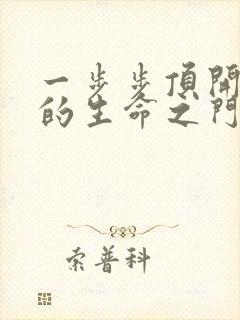 一步步頂開
的生命之門
索普科